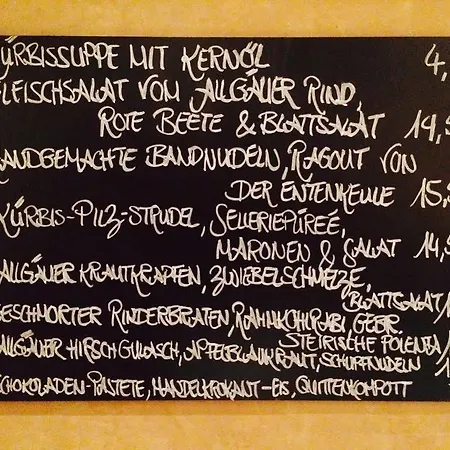 ÜRBISSUPPE MIT KERNÖL 4,
LEISCHSALAT VOM ALLGÄUER RIND,
ROTE BEETE & BLATTSALAT 14,5
ANDGEMACHTE BANDNUDELN, RAGOUT VON
DER ENTENKEULE 15,5
KÜRBIS-PILZ-STRUDEL, SELLERIEPÜREÉ,
MARONEN & SALAT 14,5
ALLGÄUER KRAUTKRAPFEN, ZWIEBELSCHMELZE,
BLATTSALAT 1
GESCHMORTER RINDERBRATEN, RAHMKOHLRABI, GEBR.
STEIRISCHE POLENTA 1
ALLGÄUER HIRSCHGULASCH, APFELBLAUKRAUT, SCHUPFNUDELN 1
SCHOKOLADEN-PASTETE, MANDELKROKANT-EIS, QUITTENKOMPOTT